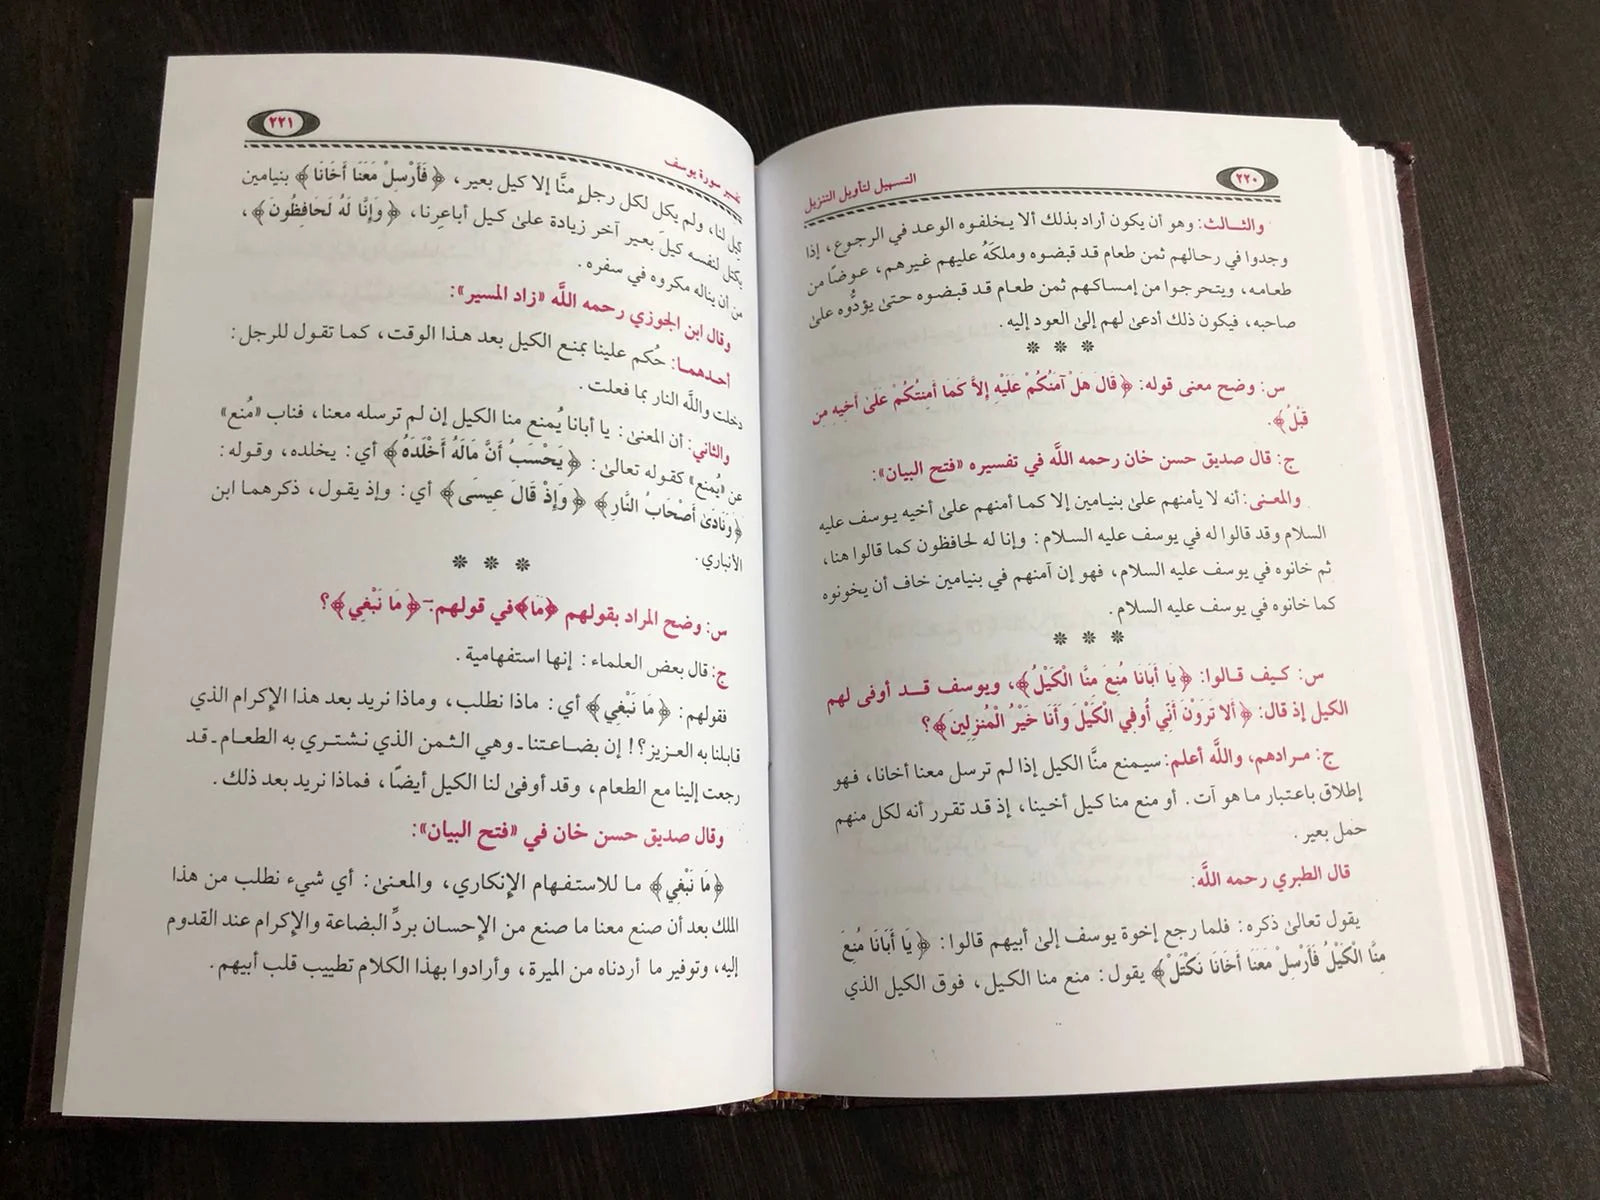 ٢٢٠
التسهيل لتأويل التنزيل
والثالث: وهو أن يكون أراد بذلك ألا يخلفوه الوعد في الرجوع، إذا
وجدوا في رحالهم ثمن طعام قد قبضوه وملكَهُ عليهم غيرهم، عوضًا من
طعامه، ويتحرجوا من إمساكهم ثمن طعام قد قبضوه حتىٰ يؤدُّوه علىٰ
صاحبه، فيكون ذلك أدعىٰ لهم إلىٰ العود إليه.
* * *
س: وضح معنى قوله: ﴿قَالَ هَلْ آمَنُكُمْ عَلَيْهِ إِلاَّ كَمَا أَمِنتُكُمْ عَلَىٰ أَخِيهِ مِن
قَبْلُ﴾.
ج: قال صديق حسن خان رحمه اللَّه في تفسيره «فتح البيان»:
والمعنى: أنه لا يأمنهم علىٰ بنيامين إلا كما أمنهم علىٰ أخيه يوسف عليه
السلام وقد قالوا له في يوسف عليه السلام: وإنا له لحافظون كما قالوا هنا،
ثم خانوه في يوسف عليه السلام، فهو إن آمنهم في بنيامين خاف أن يخونوه
كما خانوه في يوسف عليه السلام.
* * *
س: كيف قالوا: ﴿يَا أَبَانَا مُنِعَ مِنَّا الْكَيْلُ﴾، ويوسف قد أوفى لهم
الكيل إذ قال: ﴿أَلا تَرَوْنَ أَنِّي أُوفِي الْكَيْلَ وَأَنَا خَيْرُ الْمُنزِلِينَ﴾؟
ج: مرادهم، واللَّه أعلم: سيمنع منَّا الكيل إذا لم ترسل معنا أخانا، فهو
إطلاق باعتبار ما هو آت. أو منع منا كيل أخينا، إذ قد تقرر أنه لكل منهم
حمل بعير.
قال الطبري رحمه اللَّه:
يقول تعالىٰ ذكره: فلما رجع إخوة يوسف إلىٰ أبيهم قالوا: ﴿يَا أَبَانَا مُنِعَ
مِنَّا الْكَيْلُ فَأَرْسِلْ مَعَنَا أَخَانَا نَكْتَلْ﴾ يقول: منع منا الكيل، فوق الكيل الذي
٢٢١
تفسير سورة يوسف
كيل لنا، ولم يكل لكل رجلٍ منَّا إلا كيل بعير، ﴿فَأَرْسِلْ مَعَنَا أَخَانَا﴾ بنيامين
يكتل لنفسه كيلَ بعير آخر زيادة علىٰ كيل أباعرنا، ﴿وَإِنَّا لَهُ لَحَافِظُونَ﴾،
من أن يناله مكروه في سفره.
وقال ابن الجوزي رحمه اللَّه «زاد المسير»:
أحدهما: حُكم علينا بمنع الكيل بعد هذا الوقت، كما تقول للرجل:
دخلت واللَّه النار بما فعلت.
والثاني: أن المعنىٰ: يا أبانا يُمنع منا الكيل إن لم ترسله معنا، فناب «مُنع»
عن «يُمنع» كقوله تعالىٰ: ﴿يَحْسَبُ أَنَّ مَالَهُ أَخْلَدَهُ﴾ أي: يخلده، وقوله:
﴿وَنَادَىٰ أَصْحَابُ النَّارِ﴾ ﴿وَإِذْ قَالَ عِيسَى﴾ أي: وإذ يقول، ذكرهما ابن
الأنباري.
* * *
س: وضح المراد بقولهم ﴿مَا﴾ في قولهم: ﴿مَا نَبْغِي﴾؟
ج: قال بعض العلماء: إنها استفهامية.
فقولهم: ﴿مَا نَبْغِي﴾ أي: ماذا نطلب، وماذا نريد بعد هذا الإكرام الذي
قابلنا به العزيز؟! إن بضاعتنا ـ وهي الثمن الذي نشتري به الطعام ـ قد
رجعت إلينا مع الطعام، وقد أوفىٰ لنا الكيل أيضًا، فماذا نريد بعد ذلك.
وقال صديق حسن خان في «فتح البيان»:
﴿مَا نَبْغِي﴾ ما للاستفهام الإنكاري، والمعنىٰ: أي شيء نطلب من هذا
الملك بعد أن صنع معنا ما صنع من الإحسان بردِّ البضاعة والإكرام عند القدوم
إليه، وتوفير ما أردناه من الميرة، وأرادوا بهذا الكلام تطييب قلب أبيهم.